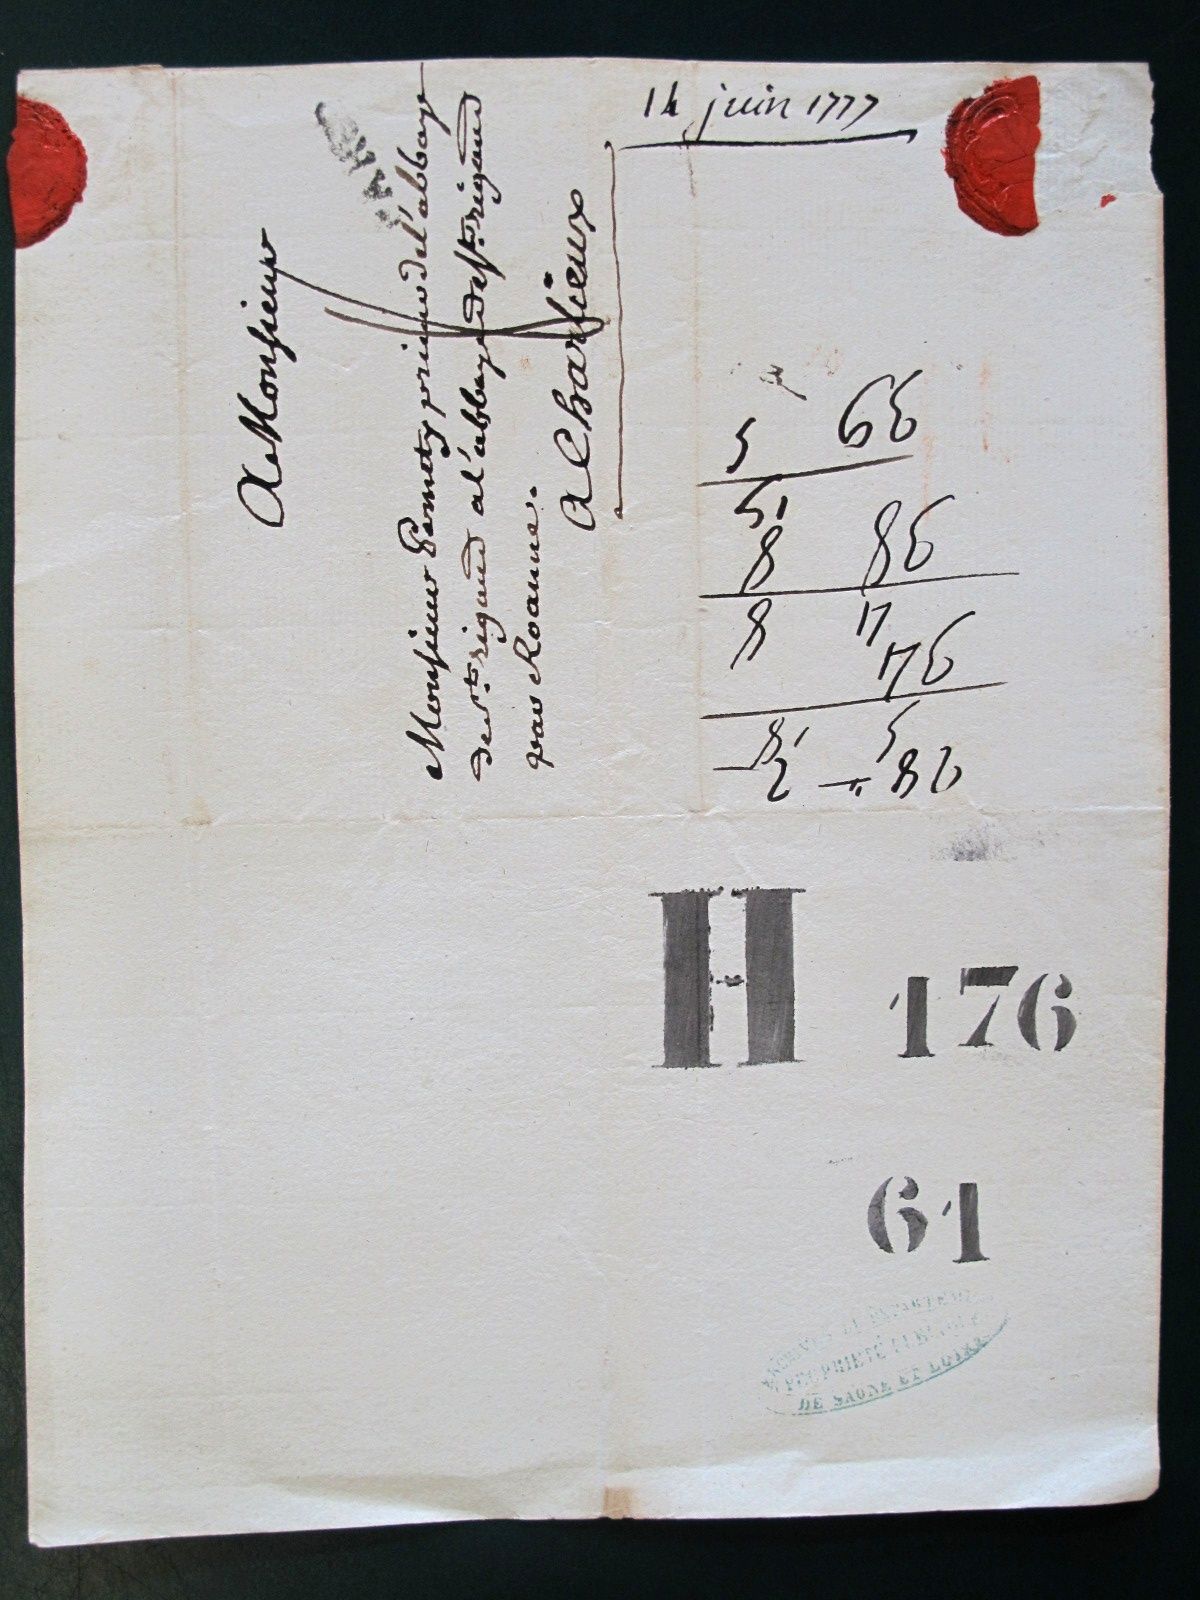 14 juin 1777
A Monsieur
Monsieur Pernety prieur de l'abbaye
de st. rigaud a l'abbaye de st. rigaud
par Roanne.
A Charlieux
5 66
51
8 86
8 17
176
81 5
2 86
H 176
61
ARCHIVES DU DEPARTEMENT
PROPRIETÉ PUBLIQUE
DE SAONE ET LOIRE